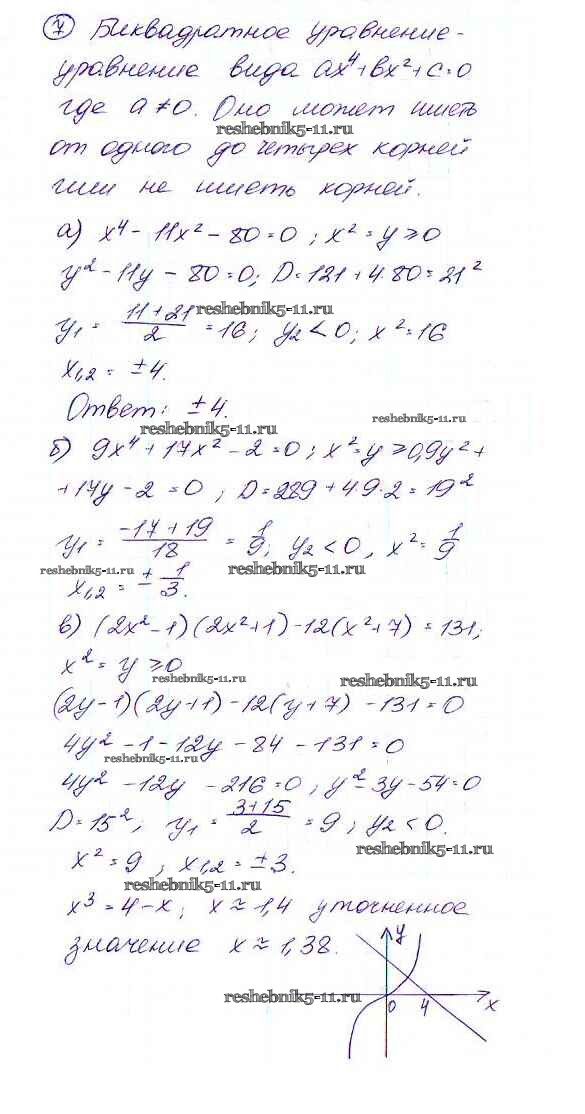 7 Биквадратное уравнение-
уравнение вида ax⁴+bx²+c=0
где a≠0. Оно может иметь
reshebnik5-11.ru
от одного до четырех корней
или не иметь корней.
а) x⁴-11x²-80=0; x²=y⩾0
y²-11y-80=0; D=121+4·80=21²
reshebnik5-11.ru
y₁= (11+21)/2 =16; y₂<0; x²=16
x₁,₂= ±4.
Ответ: ±4.
reshebnik5-11.ru
б) 9x⁴+17x²-2=0; x²=y⩾0, 9y²+
+17y-2=0; D=289+4·9·2=19²
y₁= (-17+19)/18 = 1/9; y₂<0, x²= 1/9
reshebnik5-11.ru reshebnik5-11.ru
x₁,₂= ± 1/3.
в) (2x²-1)(2x²+1)-12(x²+7)=131;
x²=y⩾0
reshebnik5-11.ru
(2y-1)(2y+1)-12(y+7)-131=0
4y²-1-12y-84-131=0
reshebnik5-11.ru
4y²-12y-216=0; y²-3y-54=0
D=15²; y₁= (3+15)/2 =9; y₂<0.
reshebnik5-11.ru
x²=9; x₁,₂=±3.
reshebnik5-11.ru
x³=4-x; x≈1,4 уточненное
значение x≈1,38.
y
reshebnik5-11.ru
0 4 x